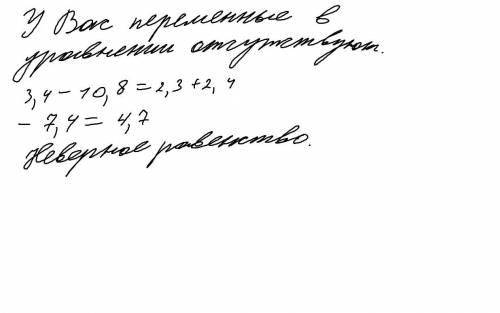 У Вас переменные в
уравнении отсутствуют.
3,4 - 10,8 = 2,3 + 2,4
- 7,4 = 4,7
Неверное равенство.